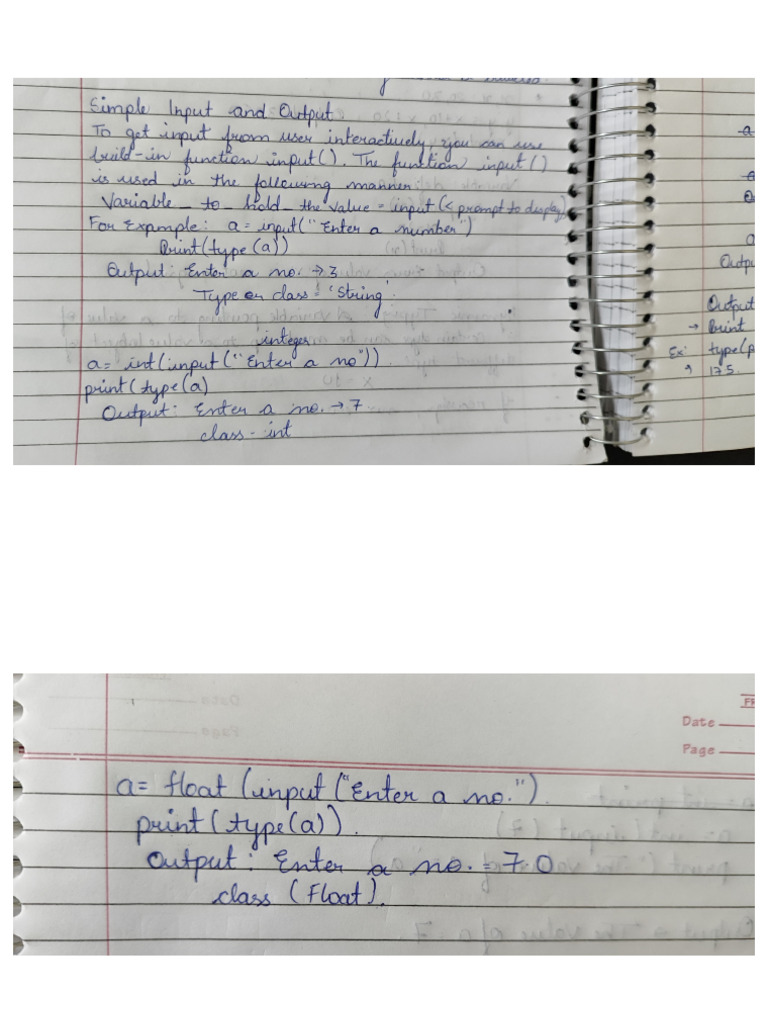 Simple Input and Output
To get input from user interactively, you can use
build-in function input(). The function input()
is used in the following manner:
Variable_to_hold_the value = input(< prompt to display)
For Exmple: a = input("Enter a number")
Print(type(a))
Output: Enter a no. → 3
Type or class = 'String'.
integer
a = int(input("Enter a no"))
print(type(a)
Output: Enter a no. → 7
class - int
a
Outpu
Output
→ Print
Ex: type(p
175.
Date
Page
a = float (input ("Enter a no.")
print(type(a)).
Output: Enter a no. = 7.0
class (float).